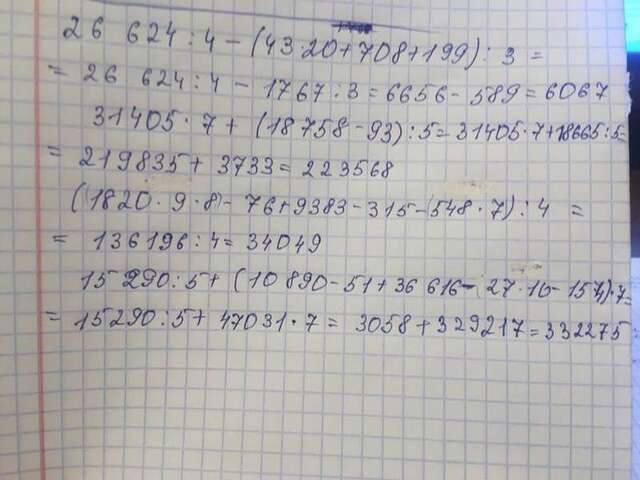 26 624 : 4 - (43·20+708+199) : 3 =
= 26 624 : 4 - 1767 : 3 = 6656 - 589 = 6067
31405 · 7 + (18 758 - 93) : 5 = 31405 · 7 + 18665 : 5 =
= 219835 + 3733 = 223568
(1820 · 9 · 8 - 76 + 9383 - 315 - 548 · 7) : 4 =
= 136196 : 4 = 34049
15 290 : 5 + (10 890 - 51 + 36 616 - 27 · 10 - 154) · 7 =
= 15290 : 5 + 47031 · 7 = 3058 + 329217 = 332275